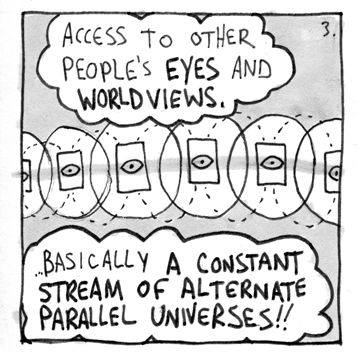 3.
ACCESS TO OTHER
PEOPLE'S EYES AND
WORLDVIEWS.
...BASICALLY A CONSTANT
STREAM OF ALTERNATE
PARALLEL UNIVERSES!!